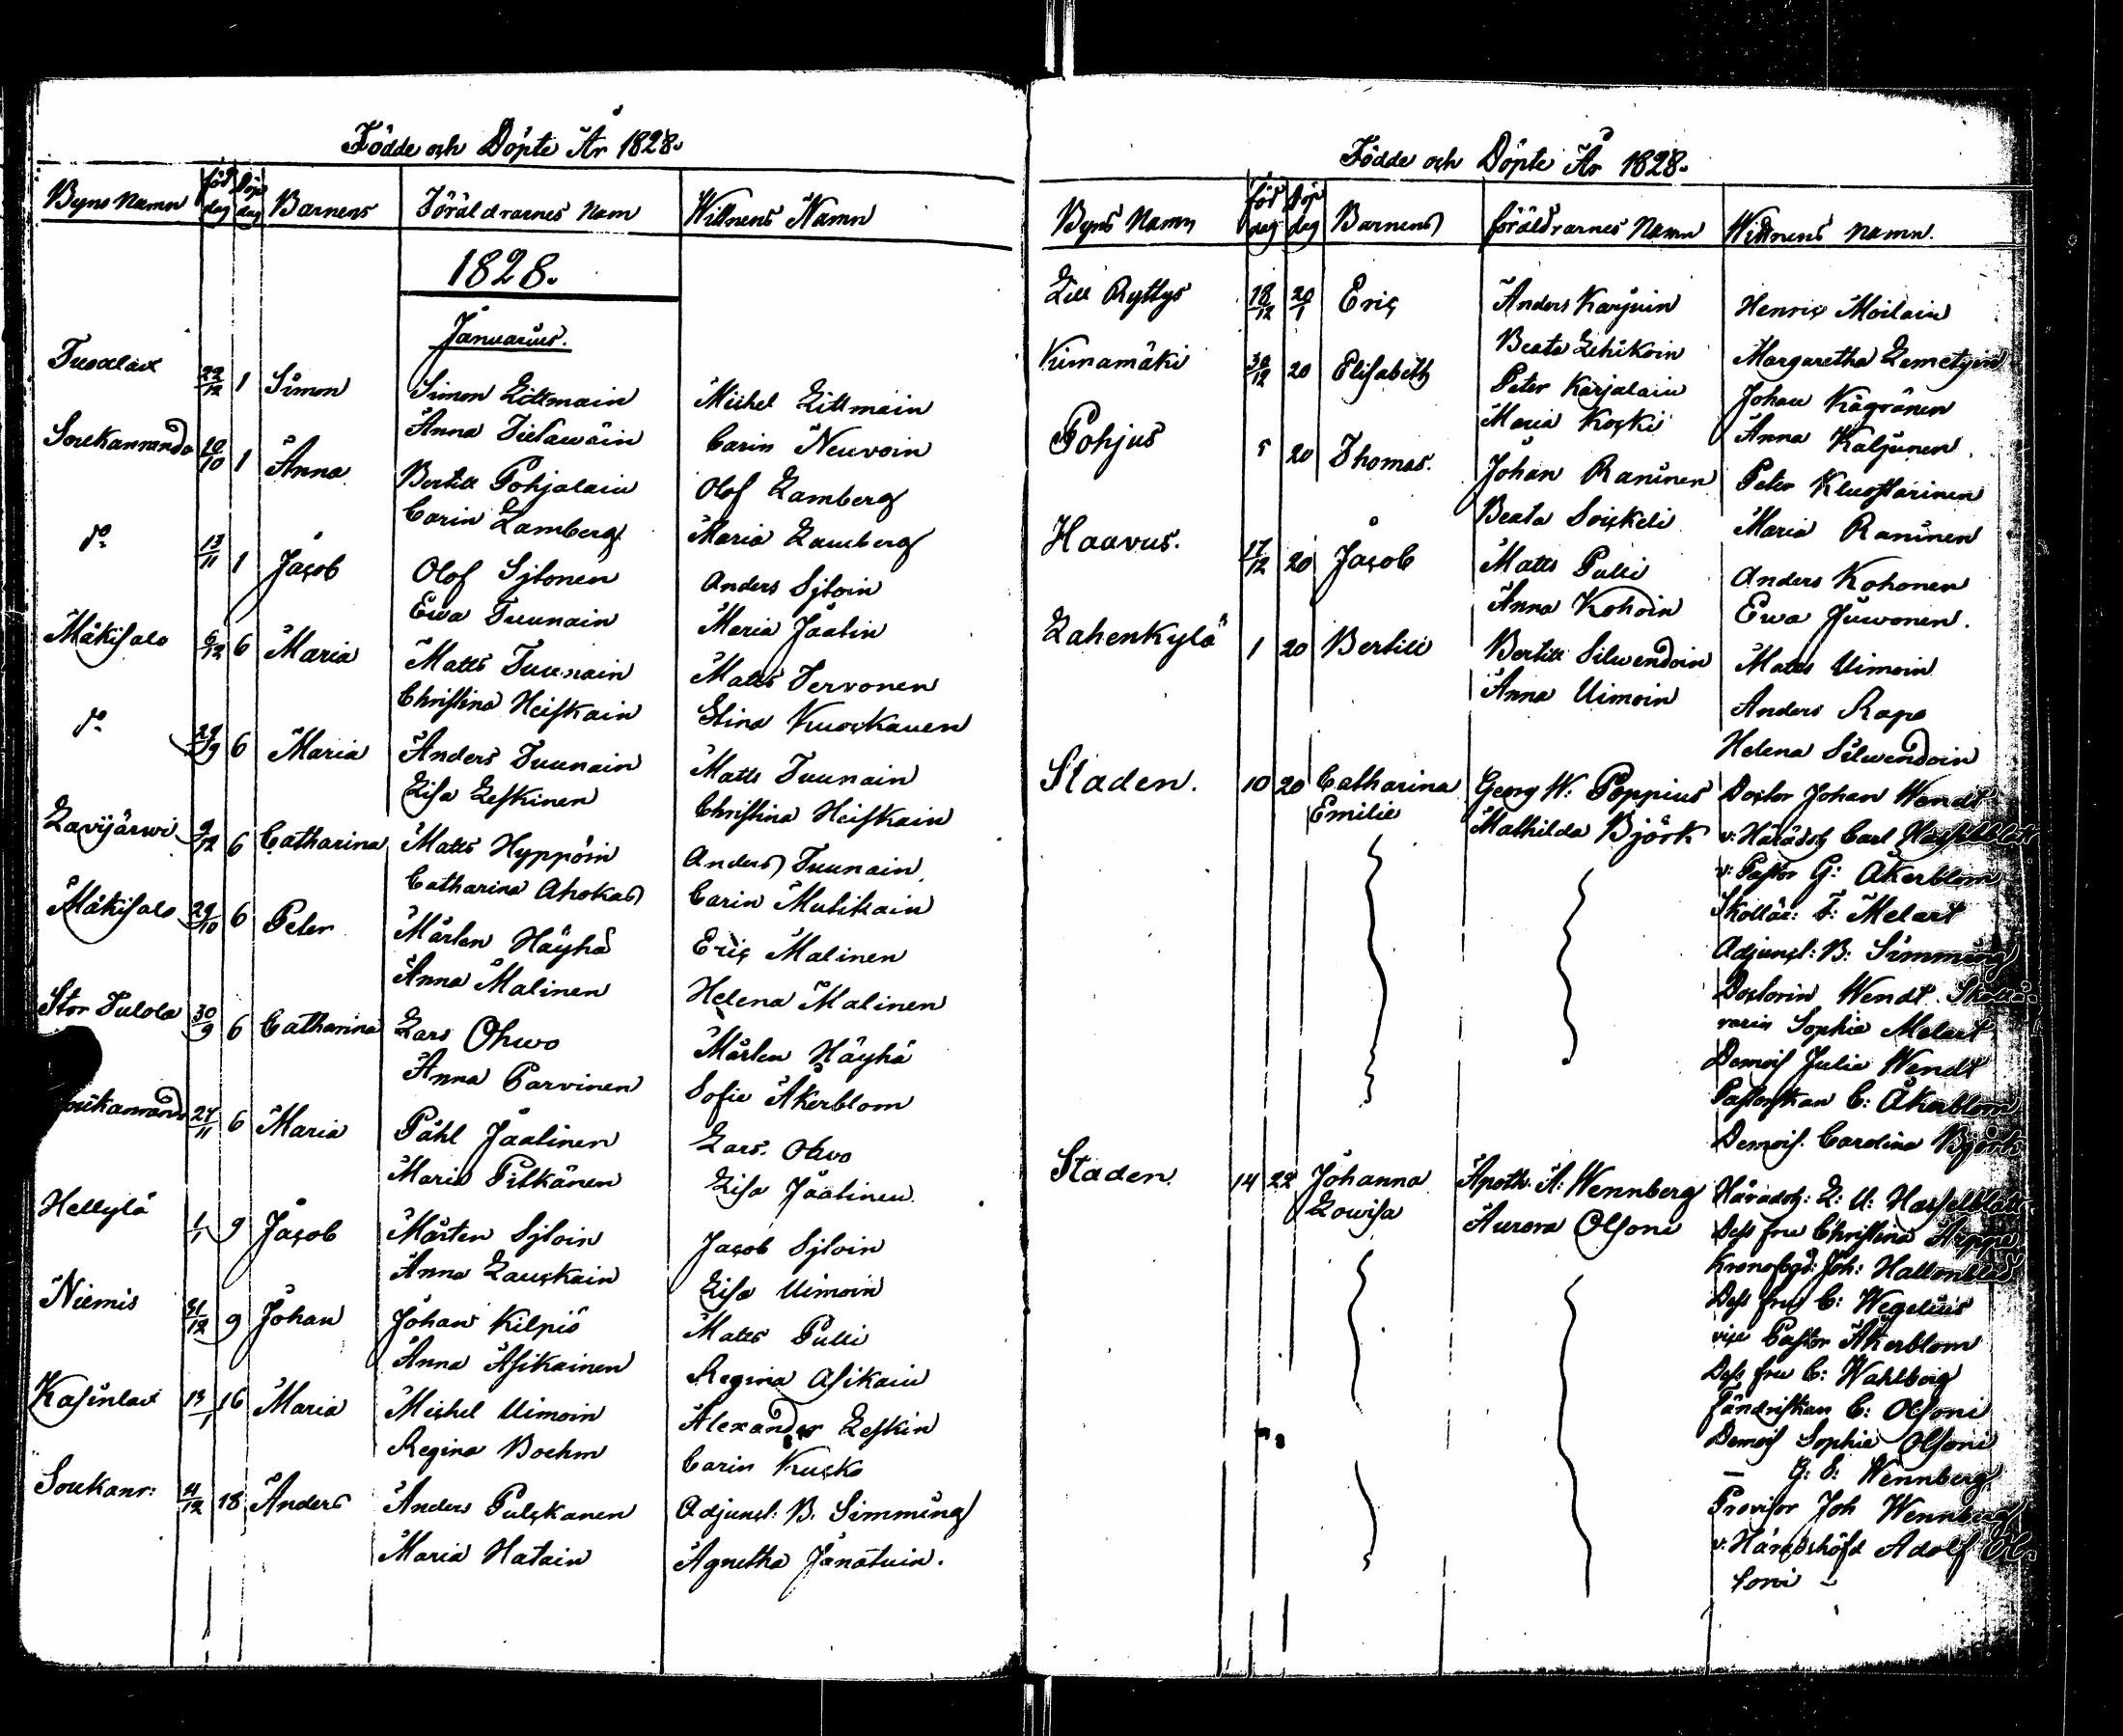 Födde och Döpte År 1828.
Byns Namn föd dag Döp dag Barnens Föräldrarnes Namn Wittnens Namn
1828.
Januarius.
Tuoxlax 22/12 1 Simon Simon Littmain Michel Littmain
Anna Tiétäwäin Carin Neuvoin
Soukanranda 20/10 1 Anna Bertill Pohjalain Olof Lamberg
Carin Lamberg Maria Lamberg
do 13/11 1 Jacob Olof Sjlonen Anders Sjloin
Ewa Tuunain Maria Jäälin
Mäkisalo 6/12 6 Maria Matts Tuunain Matts Tervonen
Christina Heiskain Stina Kuockanen
do 29/9 6 Maria Anders Tuunain Matts Tuunain
Lisa Leskinen Christina Heiskain
Lavijärwi 9/12 6 Catharina Matts Hyppöin Anders Tuunain
Catharina Ahokas Carin Mutikain
Mäkisalo 29/10 6 Peter Mårten Häyhä Eric Malinen
Anna Malinen Helena Malinen
Stor Tulola 30/9 6 Catharina Lars Ohwo Mårten Häyhä
Anna Parvinen Sofie Åkerblom
Soukanranda 27/11 6 Maria Påhl Jäälinen Lars Ohvo
Maria Pitkänen Lisa Jäälinen
Hellylä 1/1 9 Jacob Mårten Sjloin Jacob Sjloin
Anna Lauckain Lisa Uimoin
Niemis 31/12 9 Johan Johan Kilpiö Matts Pulli
Anna Asikainen Regina Asikain
Kasinlax 13/1 16 Maria Michel Uimoin Alexander Leskin
Regina Boehm Carin Kucko
Soukanr: 21/12 18 Anders Anders Pulckanen Adjunct: B. Simming
Maria Hatain Agnetha Jänätuin.
Födde och Döpte År 1828.
Byns Namn föd dag Döp dag Barnens föräldrarnes Namn Wittnens namn.
Lill Ryttys 18/12 20/1 Eric Anders Karjuin Henric Moilain
Beata Lehikoin Margaretha Lemetyin
Kirnamäki 30/12 20 Elisabeth Peter Karjalain Johan Kägränen
Maria Kocki Anna Kaljunen
Pohjus 5 20 Thomas. Johan Raninen Peter Kluostarinen
Beata Soickeli Maria Raninen
Haavus. 17/12 20 Jacob Matts Pulli Anders Kohonen
Anna Kohoin Ewa Juwonen.
Lahenkylä 1 20 Bertill Bertill Silwendoin Matts Uimoin
Anna Uimoin Anders Rapo
Helena Silwendoin
Staden. 10 20 Catharina Georg W: Poppius Doctor Johan Wendt
Emilie Mathilda Björk v: Häradsh Carl Hasselblatt
v: Pastor G: Åkerblom
Skollär: F: Melart
Adjunct: B: Simming
Doctorin Wendt Skollä-
rarin Sophie Melart
Demois Julie Wendt
Pastorskan C: Åkerblom
Demois. Carolina Björk
Staden 14 22 Johanna Apoth: A: Wennberg Häradsh: L: U: Hasselblatt
Lowisa Aurora Olsoni Dess fru Christina Arppe
Kronofogd: Joh: Hallonblad
Dess fru C: Wegelius
vice Pastor Åkerblom
Dess fru C: Wahlberg
Fändriskan C: Olsoni
Demois Sophie Olsoni
— G: E: Wennberg
Provisor Joh Wennberg
v: Häradshöfd Adolf Ol-
soni –